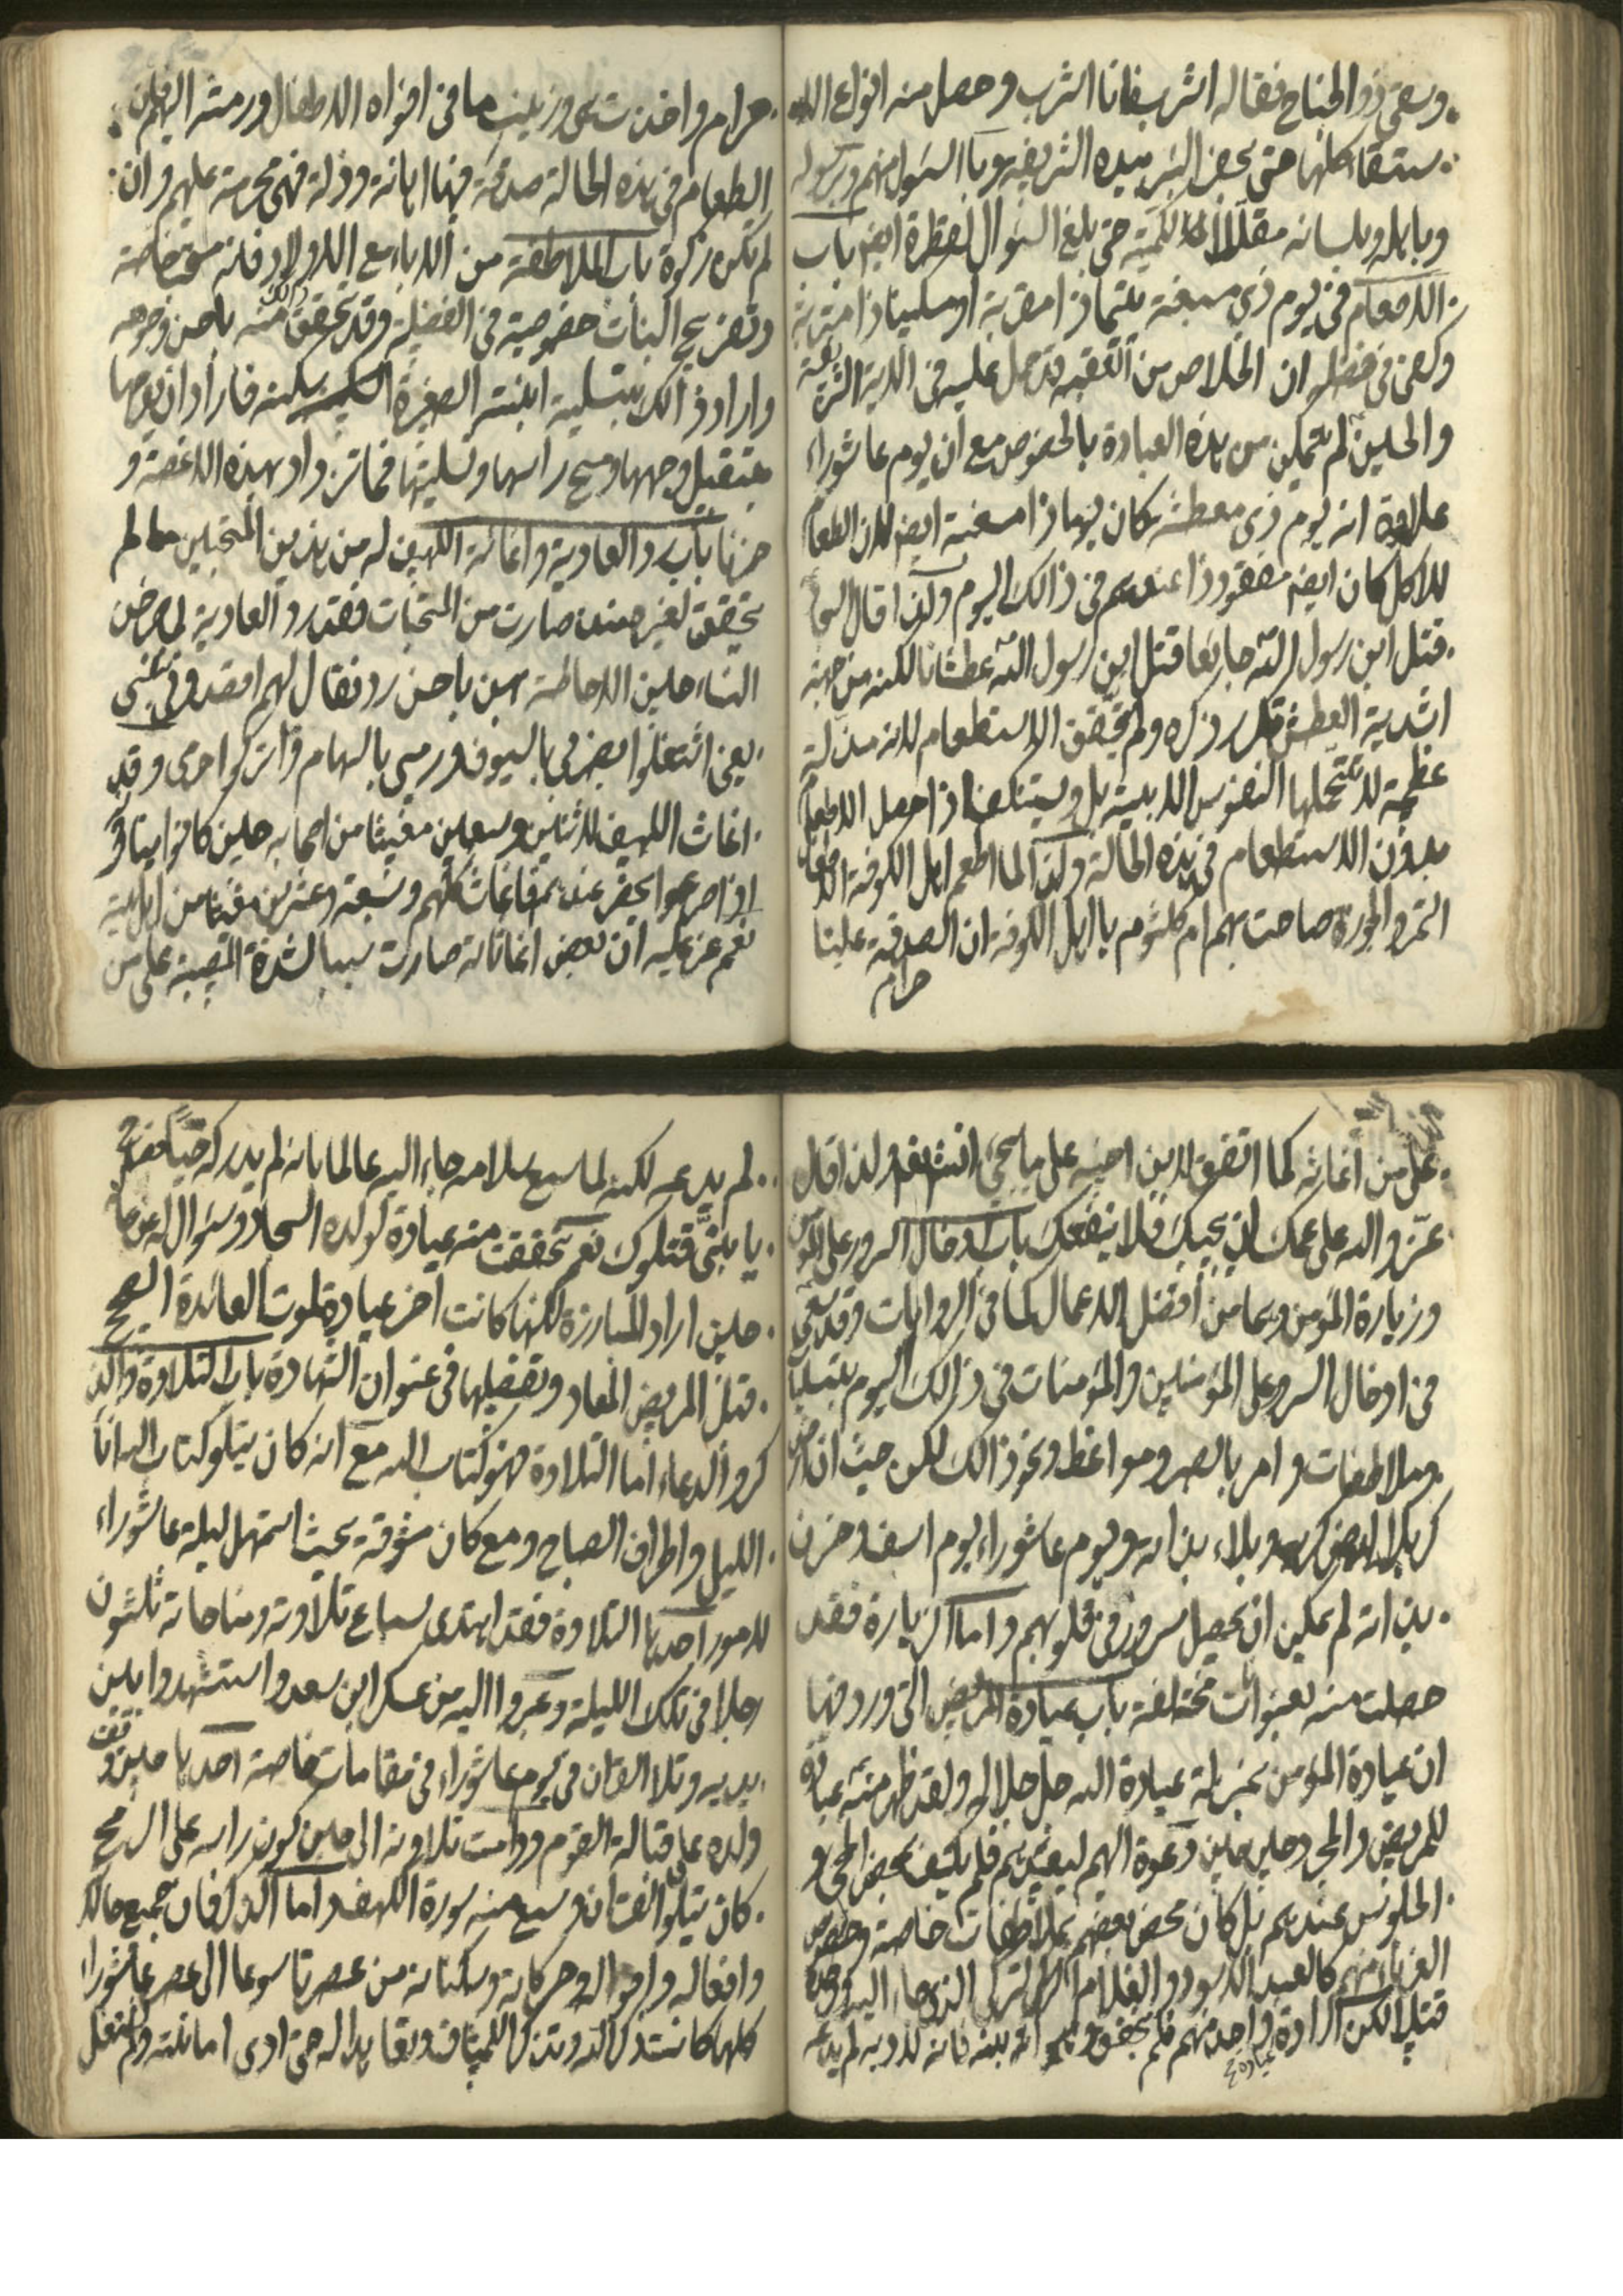 وسقى ذو الجناح فقال له اشرب فانا اشرب وحصل منه انواع الا
ستسقاء كلها حتى بحفر البئر بيده الشريفة وبالسؤال منهم وبرسوله
وباهله وبلسانه مقللا لكميته حتى بلغ السؤال لقطرة ايضا باب
الاطعام في يوم ذي مسغبة يتيما ذا مقربة او مسكينا ذا متربة
وكفى في فضله ان الخلاص من العقبة قد حمل عليه في الاية الشريفة
والحسين لم يتمكن من هذه العبادة بالخصوص مع ان يوم عاشوراء
علاوة انه يوم ذي معطشة كان يوما ذا مسغبة ايضا لان الطعام
للاكل كان ايضا مفقودا عندهم في ذالك اليوم ولذا قال السجاد
قتل ابن رسول الله جائعا قتل ابن رسول الله عطشانا لكنه من جهة
اشدية العطش تكرر ذكره ولم يتحقق الاستطعام لانه مذلة
عظيمة لا تتحملها النفوس الابية بل ويستنكف اذا حصل الاطعام
بدون الاستطعام في هذه الحالة ولذا لما اطعم اهل الكوفة الاطفال
التمر والجوزة صاحت بهم ام كلثوم يا اهل الكوفة ان الصدقة علينا
حرام
حرام واخذت هي وزينب ما في افواه الاطفال ورمته اليهم فان
الطعام في هذه الحالة صدقة فيها اهانة وذلة فهي محرمة عليهم وان
لم تكن زكوة باب الملاطفة من الاباء مع الاولاد فله مقام خاصة
وتفريح البنات خصوصية في الفضيلة وقد تحقق ذالك منه باحسن وجوه
واراد ذالك بتسلية ابنته الصغيرة سكينة فاراد ان يفرحها
بتقبيل وجهها ومسح راسها وتسليتها فما تزداد بهذه الا غصة و
حزنا باب رد العادية واغاثة اللهيف له من هذين المتحملين ما لم
يتحقق لغيره حيث صارت من المتحبات فقد رد العادية لمعرض
النساء حين الاحاطة بهن باحسن رد فقال لهم اقصدوني بنفسي
يعني اشتغلوا بضربي بالسيوف ورمي بالسهام واتركوا حرمي وقد
اغاث اللهيف لاثنين وسبعين مغيثا من اصحابه حين كانوا ينادونه
اذا صرعوا يحضر عندهم فاغاث كلهم وسبعة وعشرين مغيثا من اهل بيته
نعم عز عليه ان بعض اغاثاته صارت سببا لشدة المصيبة على من
على من اغاثه كما اتفق لابن اخيه على ما يجيء انشاءالله ولذا قال
عز والله على عمك ان يجيبك فلا ينفعك باب ادخال السرور على المؤمن
وزيارة المؤمن وهما من افضل الاعمال كما في الروايات وقد سعى
في ادخال السرور على المؤمنين والمؤمنات في ذالك اليوم بتسليات
وملاطفات وامر بالصبر ومواعظ ونحو ذالك لكن حيث ان ارض
كربلا ارض كرب وبلاء بذاته ويوم عاشوراء يوم اسف وحزن
بذاته لم يمكن ان يحصل سرور في قلوبهم واما الزيارة فقد
حصلت منه بعنوانات مختلفة باب عيادة المريض التي ورد فيها
ان عيادة المؤمن بمنزلة عيادة الله جل جلاله ولقد ظهر منه عيادة
للمريض والجرحى حين دعوة اليهم ليغيثهم فلم يكتف بمحض المجيء و
الجلوس عندهم بل كان يخص بعضهم بملاطفات خاصة وخصوص
الغرباء منهم كالعبد الاسود والغلام التركي الذي جاء اليه
قتيلا لكن اراد عيادة واحد منهم فلم يتحقق وهو انه بنه فانه لادبه لم يدعه
لم يدعه لكنه لما سمع سلامه جاء اليه عالما بانه لم يدركه حيا فصاح
يا بني قتلوك نعم تحققت منه عيادة لولده السجاد وسؤاله عن حاله
حين اراد المبارزة لكنها كانت اخر عيادة لموت العائدة الصحيح
قتل المريض المعاد وتفضيلها في عنوان الشهادة باب التلاوة والذ
كر والدعاء اما التلاوة فهو كتاب الله مع انه كان يتلو كتاب الله اناء
الليل واطراف الصباح ومع كان مشوقة بحيث استمهل ليلة عاشوراء
لامور احدها التلاوة فقد اهتدى لسماع تلاوته ومناجاته ثلثون
رجلا في تلك الليلة وعبروا اليه من عسكر ابن سعد واستشهدوا بين
يديه وتلا القران في يوم عاشوراء في مقامات خاصة احدها حين وقف
ولده على مقاتلة القوم ودامت تلاوته الى حين كون راسه على الرمح
كان يتلوا القران وسمع منه سورة الكهف واما الذكر فان جميع حالاته
وافعاله واقواله وحركاته وسكناته من عصر تاسوعا الى عصر عاشوراء
كلها كانت ذكر الله وتذكرا للميثاق وبقائه اله حتى ادى امانته ولم تغفل